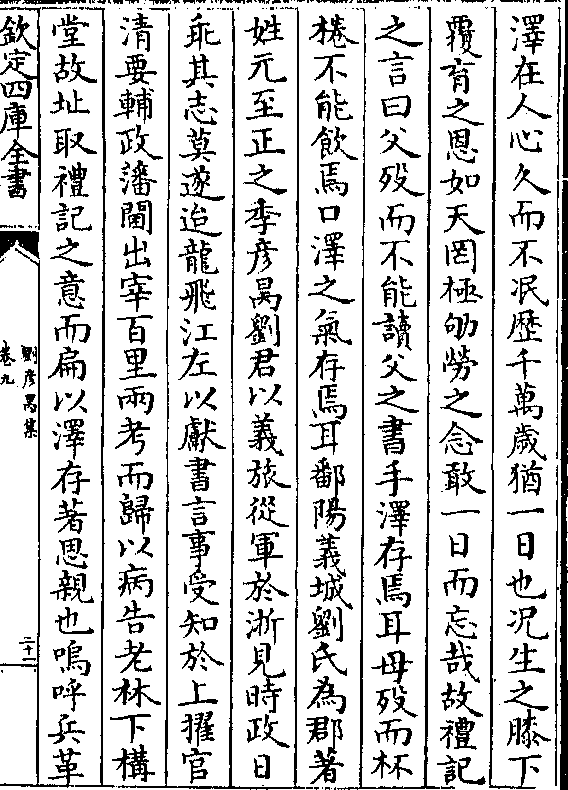 澤在人心久而不冺歴千萬歲猶一日也况生之膝下
覆育之恩如天罔極劬勞之念敢一日而忘哉故禮記
之言曰父殁而不能讀父之書手澤存焉耳母殁而杯
棬不能飲焉口澤之氣存焉耳鄱陽義城劉氏為郡著
姓元至正之季彦昺劉君以義旅從軍於浙見時政日
乖其志莫遂迨龍飛江左以獻書言事受知於上擢官
清要輔政藩閫出宰百里兩考而歸以病告老林下構
堂故址取禮記之意而扁以澤存著思親也嗚呼兵革
欽定四庫全書
劉彦昺集
卷九
二十一